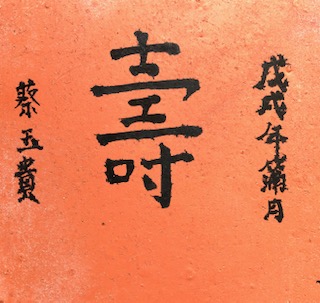 戊戌年蒲月
壽
蔡玉貴